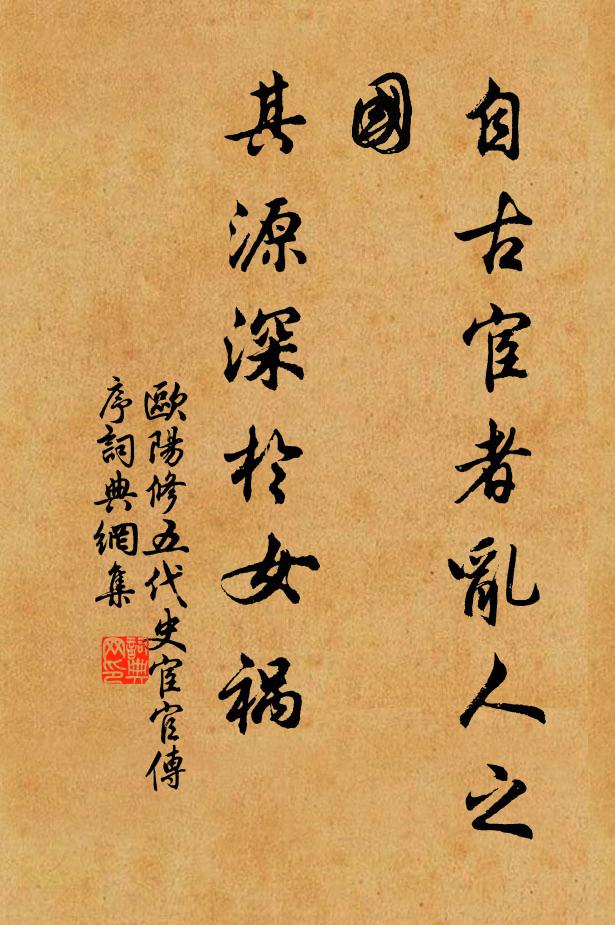 自古宦者亂人之
國
其源深於女禍
歐陽修五代史宦官傳
序詞典網集
詞典
网印